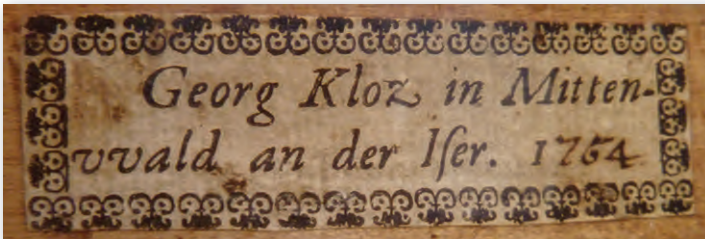 Georg Kloz in Mitten-
vvald an der Iſer. 1764